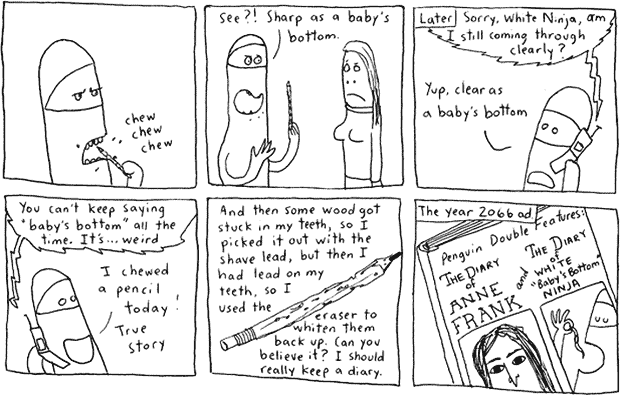 chew
chew
chew
See?! Sharp as a baby's
bottom.
Later
Sorry, White Ninja, am
I still coming through
clearly?
Yup, clear as
a baby's bottom
You can't keep saying
"baby's bottom" all the
time. It's... weird
I chewed
a pencil
today!
True
story
And then some wood got
stuck in my teeth, so I
picked it out with the
shave lead, but then I
had lead on my
teeth, so I
used the
eraser to
whiten them
back up. Can you
believe it? I should
really keep a diary.
The year 2066 ad.
Penguin Double Features:
THE DIARY
of
ANNE
FRANK
and
THE DIARY
of
WHITE
"Baby's Bottom"
NINJA